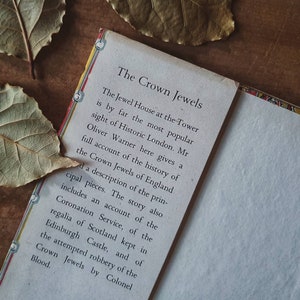 The Crown Jewels
The Jewel House at the Tower
is by far the most popular
sight of Historic London. Mr
Oliver Warner here gives a
full account of the history of
the Crown Jewels of England
a description of the prin-
cipal pieces. The story also
includes an account of the
Coronation Service, of the
regalia of Scotland kept in
Edinburgh Castle, and of
the attempted robbery of the
Crown Jewels by Colonel
Blood.